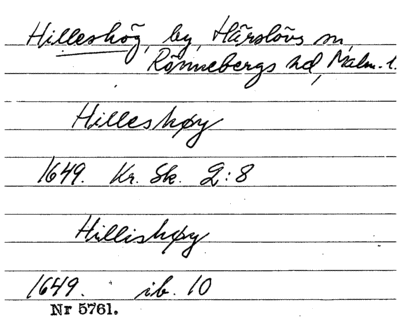 Hilleshög, by, Härslövs sn,
Rönnebergs hd, Malm. l.
Hilleshøy
1649. Kr. Sk. 2:8
Hillishøy
1649. ib. 10
Nr 5761.